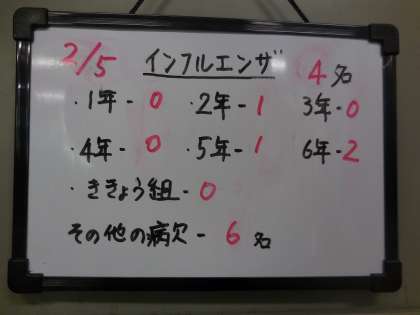 2/5 インフルエンザ 4名
・1年-0 ・2年-1 3年-0
・4年-0 ・5年-1 6年-2
・ききょう組-0
その他の病欠-6名